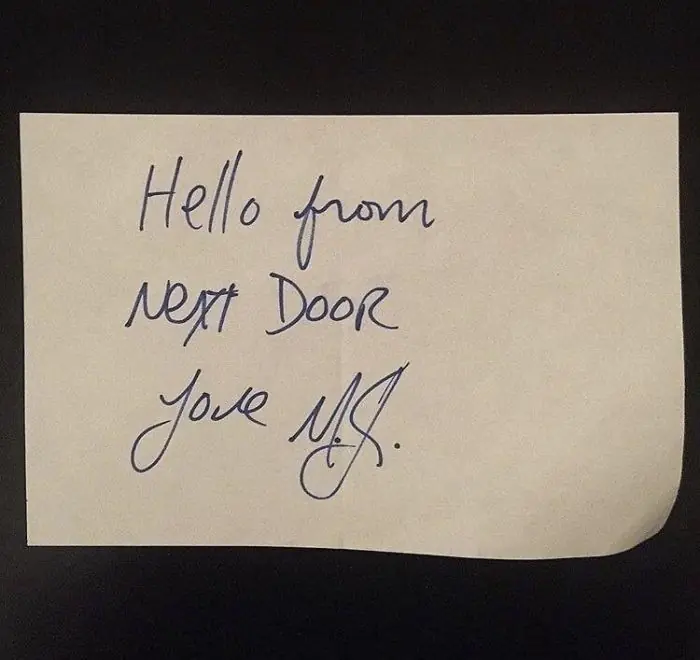 Hello from
Next DOOR
Love M.J.